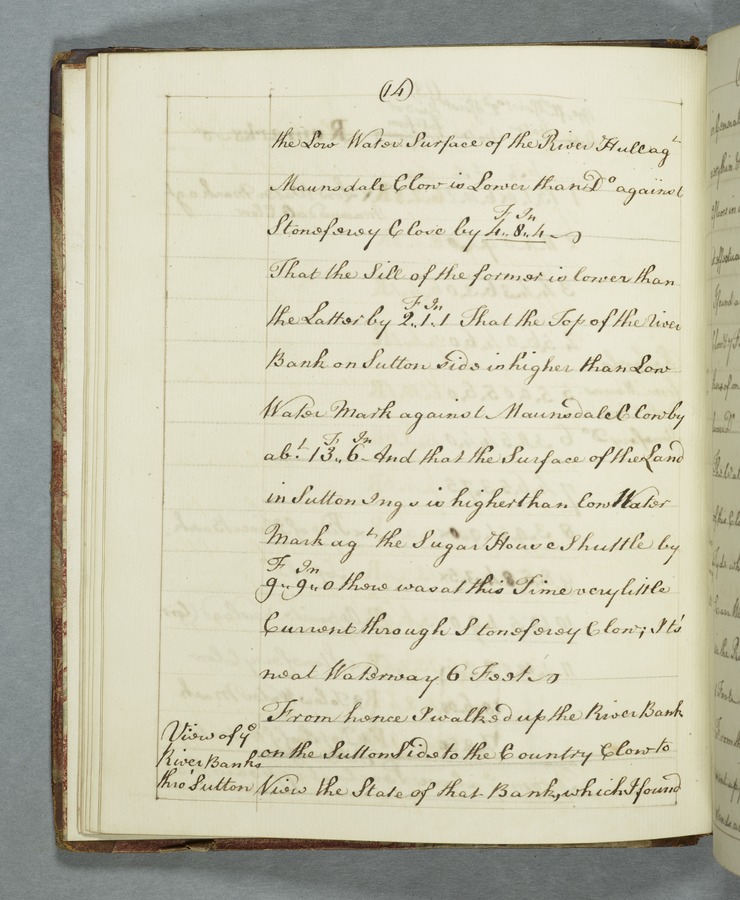 (14)
the Low Water Surface of the River Hull agt
Maunsdale Clow is Lower than Do against
Stoneferey Clove by 4„ 8„ 4
F In
That the Sill of the former is lower than
the Latter by 2„ 1„ 1 That the Top of the River
F In
Bank on Sutton side is higher than Low
Water Mark against Maunsdale Clow by
abt. 13„ 6 And that the Surface of the Land
F In
in Sutton Ings is higher than low Water
Mark agt the Sugar House Shuttle by
F In
9„ 9„ 0 there was at this Time very little
Current through Stoneferey Clow; It's
neat Waterway 6 Feet
From hence I walked up the River Bank
on the Sutton Side to the Country Clow to
View the State of that Bank, which I found
View of ye
River Banks
thro' Sutton